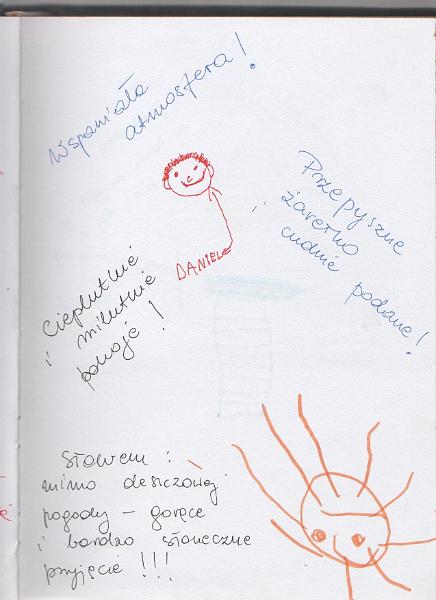 Wspaniała
atmosfera!
Przepyszne
i żarełko
cudnie podane!
DANIEL
Cieplutkie
i milutkie
pokoje!
Słowem:
mimo deszczowej
pogody – gorące
i bardzo słoneczne
przyjęcie!!!